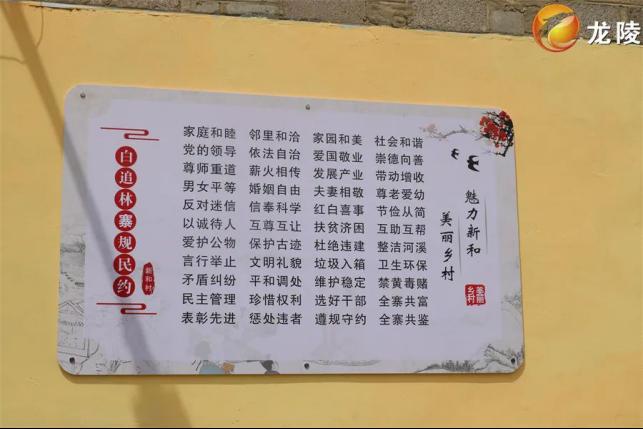 龙陵
白追林寨规民约
新和村
家庭和睦 邻里和洽 家园和美 社会和谐
党的领导 依法自治 爱国敬业 崇德向善
尊师重道 薪火相传 发展产业 带动增收
男女平等 婚姻自由 夫妻相敬 尊老爱幼
反对迷信 信奉科学 红白喜事 节俭从简
以诚待人 互尊互让 扶贫济困 互助互帮
爱护公物 保护古迹 杜绝违建 整洁河溪
言行举止 文明礼貌 垃圾入箱 卫生环保
矛盾纠纷 平和调处 维护稳定 禁黄毒赌
民主管理 珍惜权利 选好干部 全寨共富
表彰先进 惩处违者 遵规守约 全寨共鉴
魅力新和
美丽乡村
美丽乡村